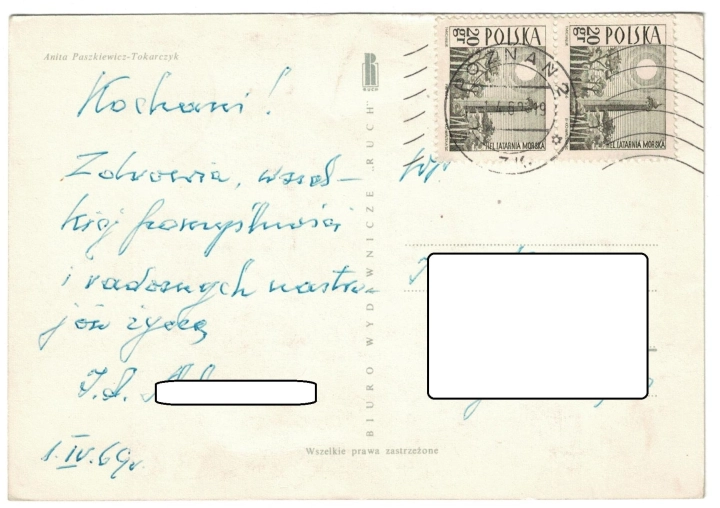 Anita Paszkiewicz-Tokarczyk
Kochani!
Zdrowia, wszel-
kiej pomyślności
i radosnych nastro-
jów życzą
I. A.
1.IV.69r.
RUCH
BIURO WYDAWNICZE „RUCH"
Wszelkie prawa zastrzeżone
20 gr POLSKA
HEL LATARNIA MORSKA
20 gr POLSKA
HEL LATARNIA MORSKA
POZNAŃ 2
WP.